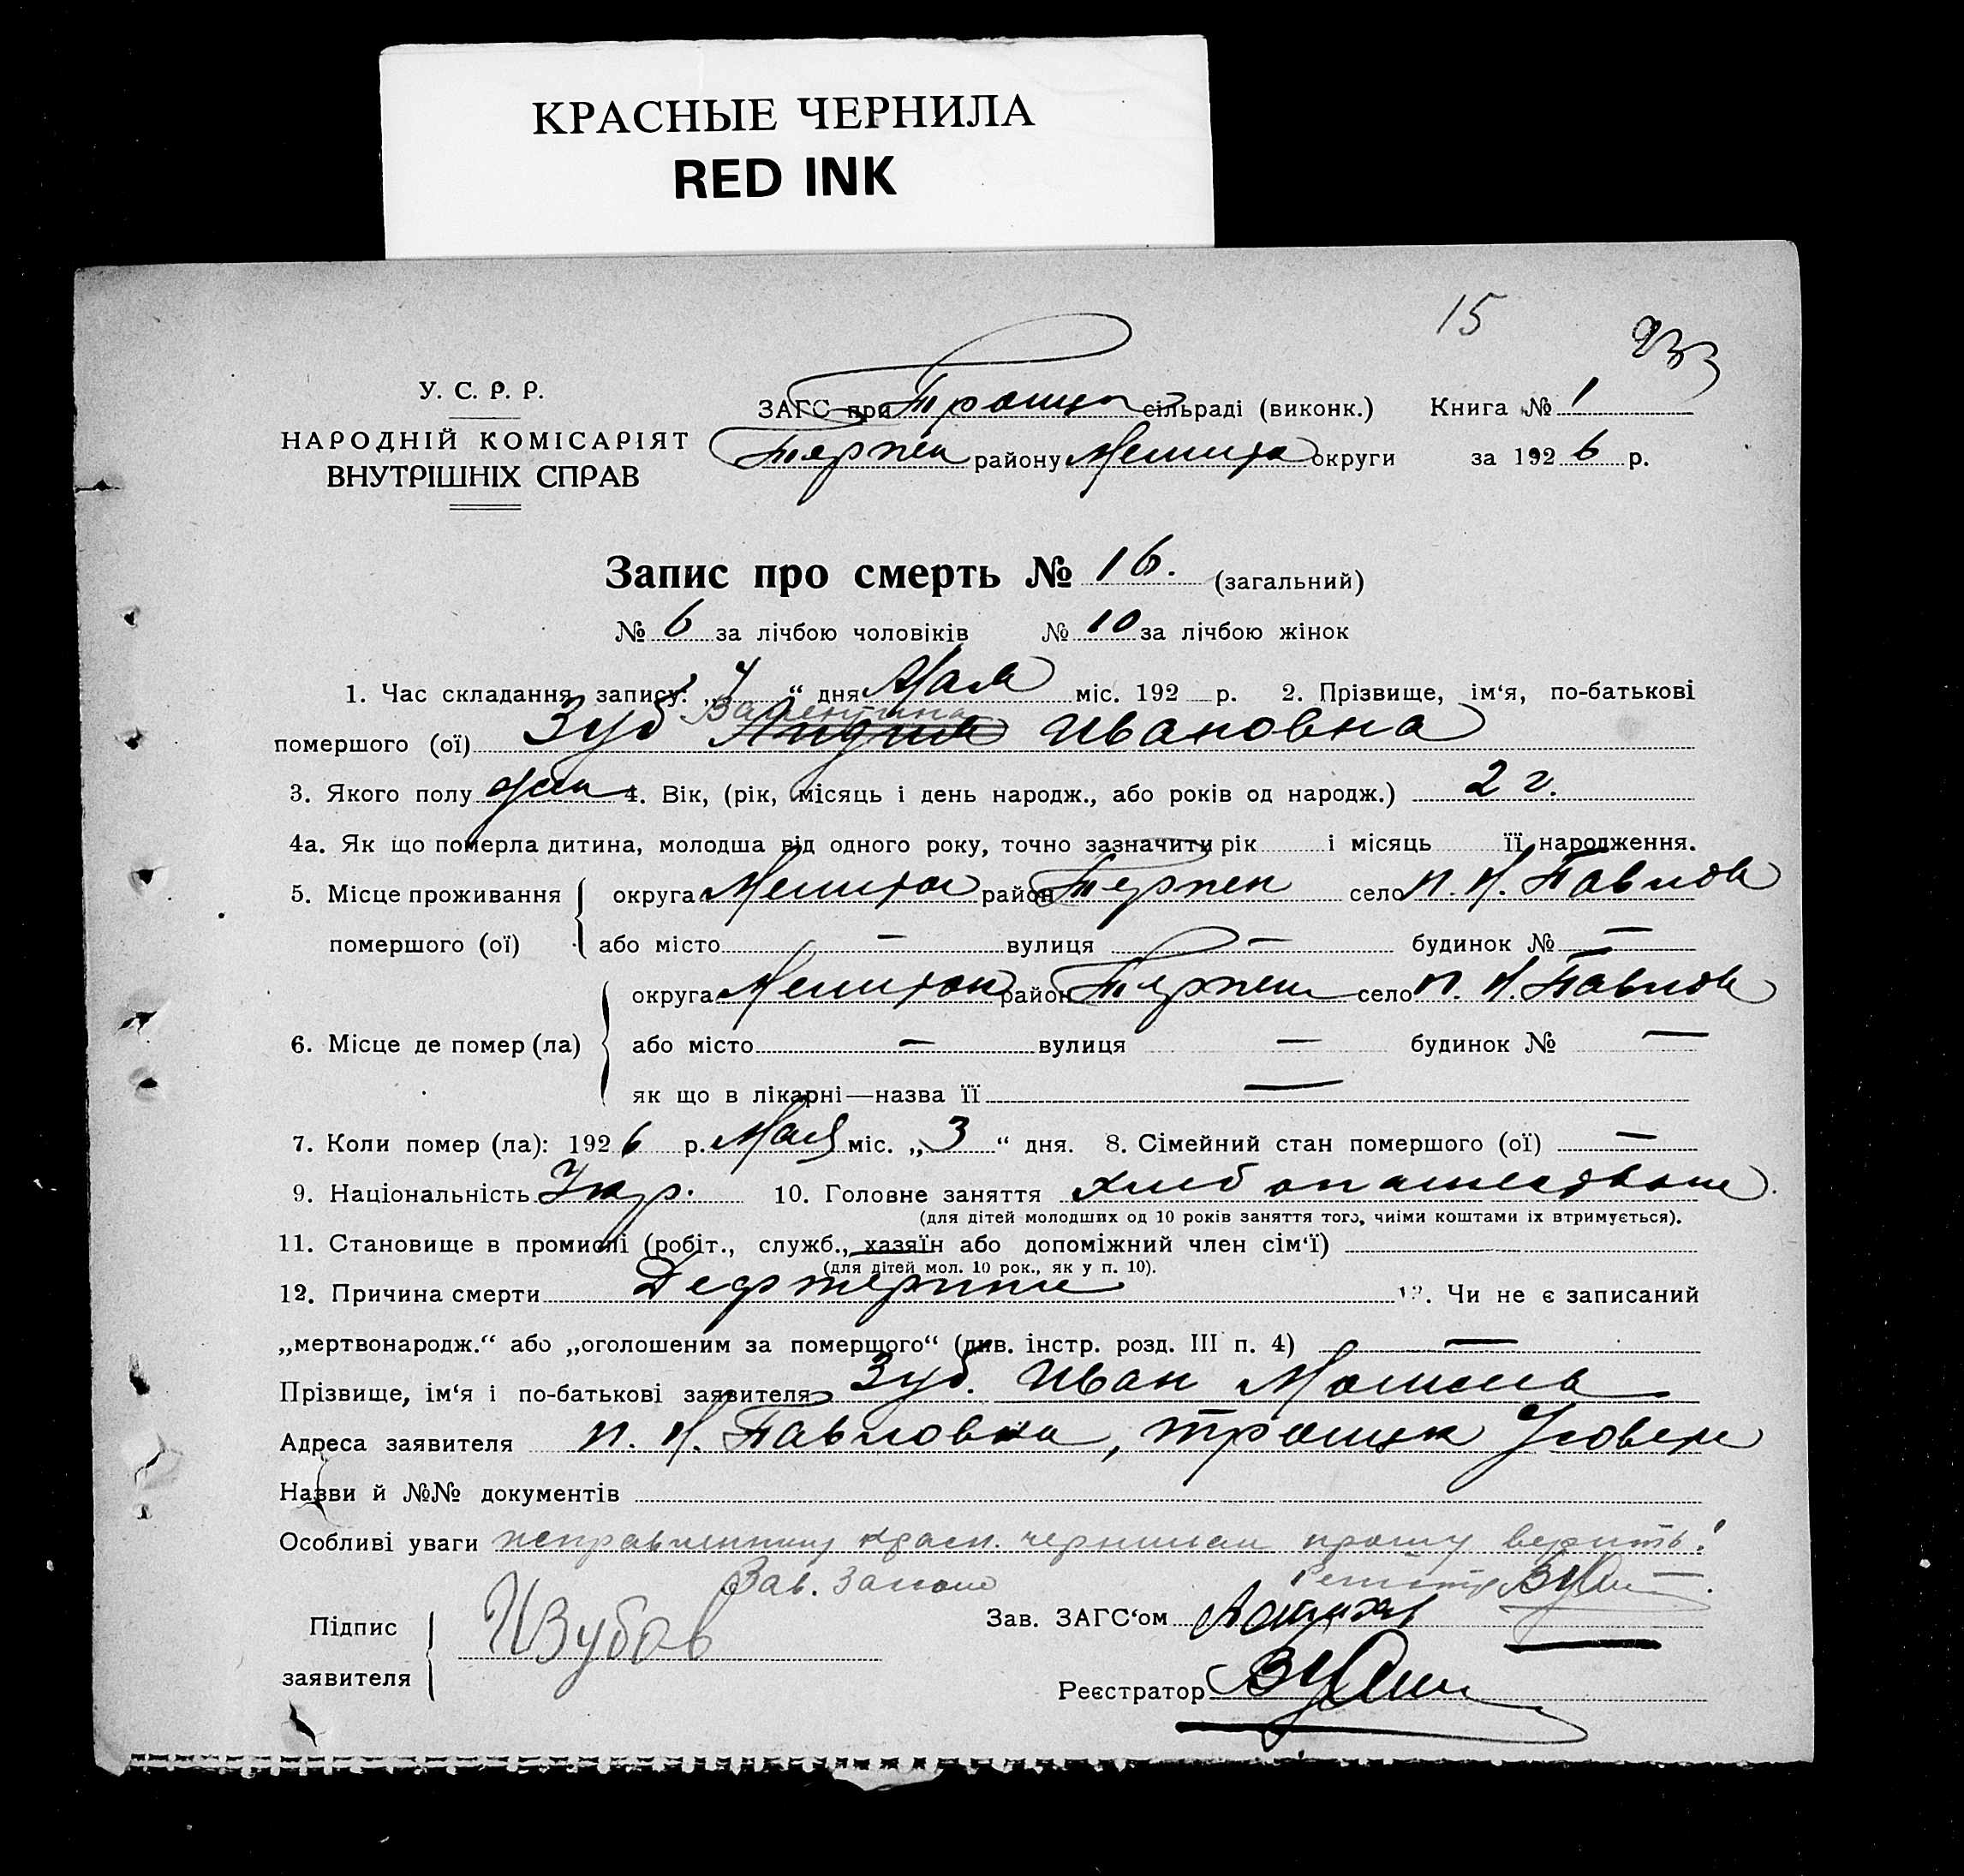 КРАСНЫЕ ЧЕРНИЛА
RED INK
15
933
У. С. Р. Р.
НАРОДНІЙ КОМІСАРІЯТ
ВНУТРІШНІХ СПРАВ
ЗАГС при Троицк сільраді (виконк.) Книга № 1
Терпен району Мелитоп округи за 1926 р.
Запис про смерть № 16. (загальний)
№ 6 за лічбою чоловіків № 10 за лічбою жінок
1. Час складання запису: „ 4 “ дня Мая міс. 192 р. 2. Прізвище, ім‘я, по-батькові
Валентина
помершого (ої) Зуб Лидия Ивановна
3. Якого полу жен 4. Вік, (рік, місяць і день народж., або років од народж.) 2 г.
4а. Як що померла дитина, молодша від одного року, точно зазначити рік і місяць її народження.
5. Місце проживання округа Мелитоп район Терпен село п. Н. Павлов
помершого (ої) або місто — вулиця — будинок № —
округа Мелитоп район Терпен село п. Н. Павлов
6. Місце де помер (ла) або місто — вулиця — будинок № —
як що в лікарні—назва її —
7. Коли помер (ла): 1926 р. Мая міс. „ 3 “ дня. 8. Сімейний стан помершого (ої) —
9. Національність Укр. 10. Головне заняття хлебопашество
(для дітей молодших од 10 років заняття того, чиїми коштами їх втримується).
11. Становище в промислі (робіт., служб., хазяїн або допоміжний член сім‘ї)
(для дітей мол. 10 рок., як у п. 10).
12. Причина смерти Дефтерит 13. Чи не є записаний
„мертвонародж.“ або „оголошеним за помершого“ (див. інстр. розд. III п. 4) —
Прізвище, ім‘я і по-батькові заявителя Зуб. Иван
Адреса заявителя п. Н. Павловка, троицк
Назви й №№ документів
Особливі уваги исправленному красн. чернилам прошу верить!
Зав. Регистр
Підпис
заявителя
ИЗубов
Зав. ЗАГС‘ом
Реєстратор